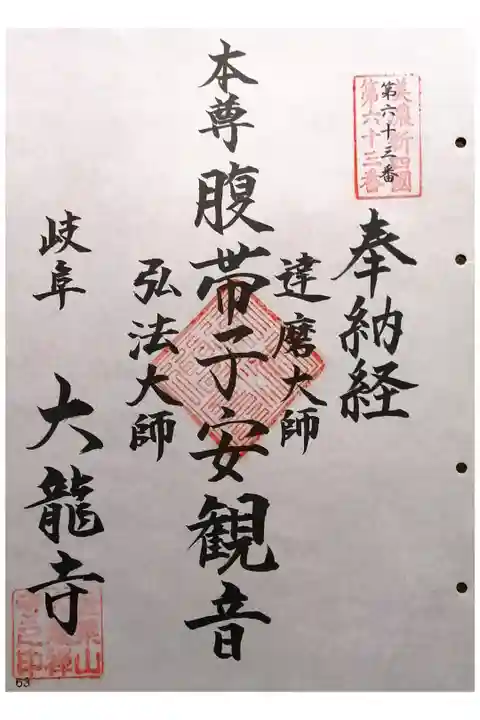 美濃新四國
第六十三番
第六十三番
奉納経
達磨大師
本尊腹帯子安観音
弘法大師
岐阜 大龍寺
63